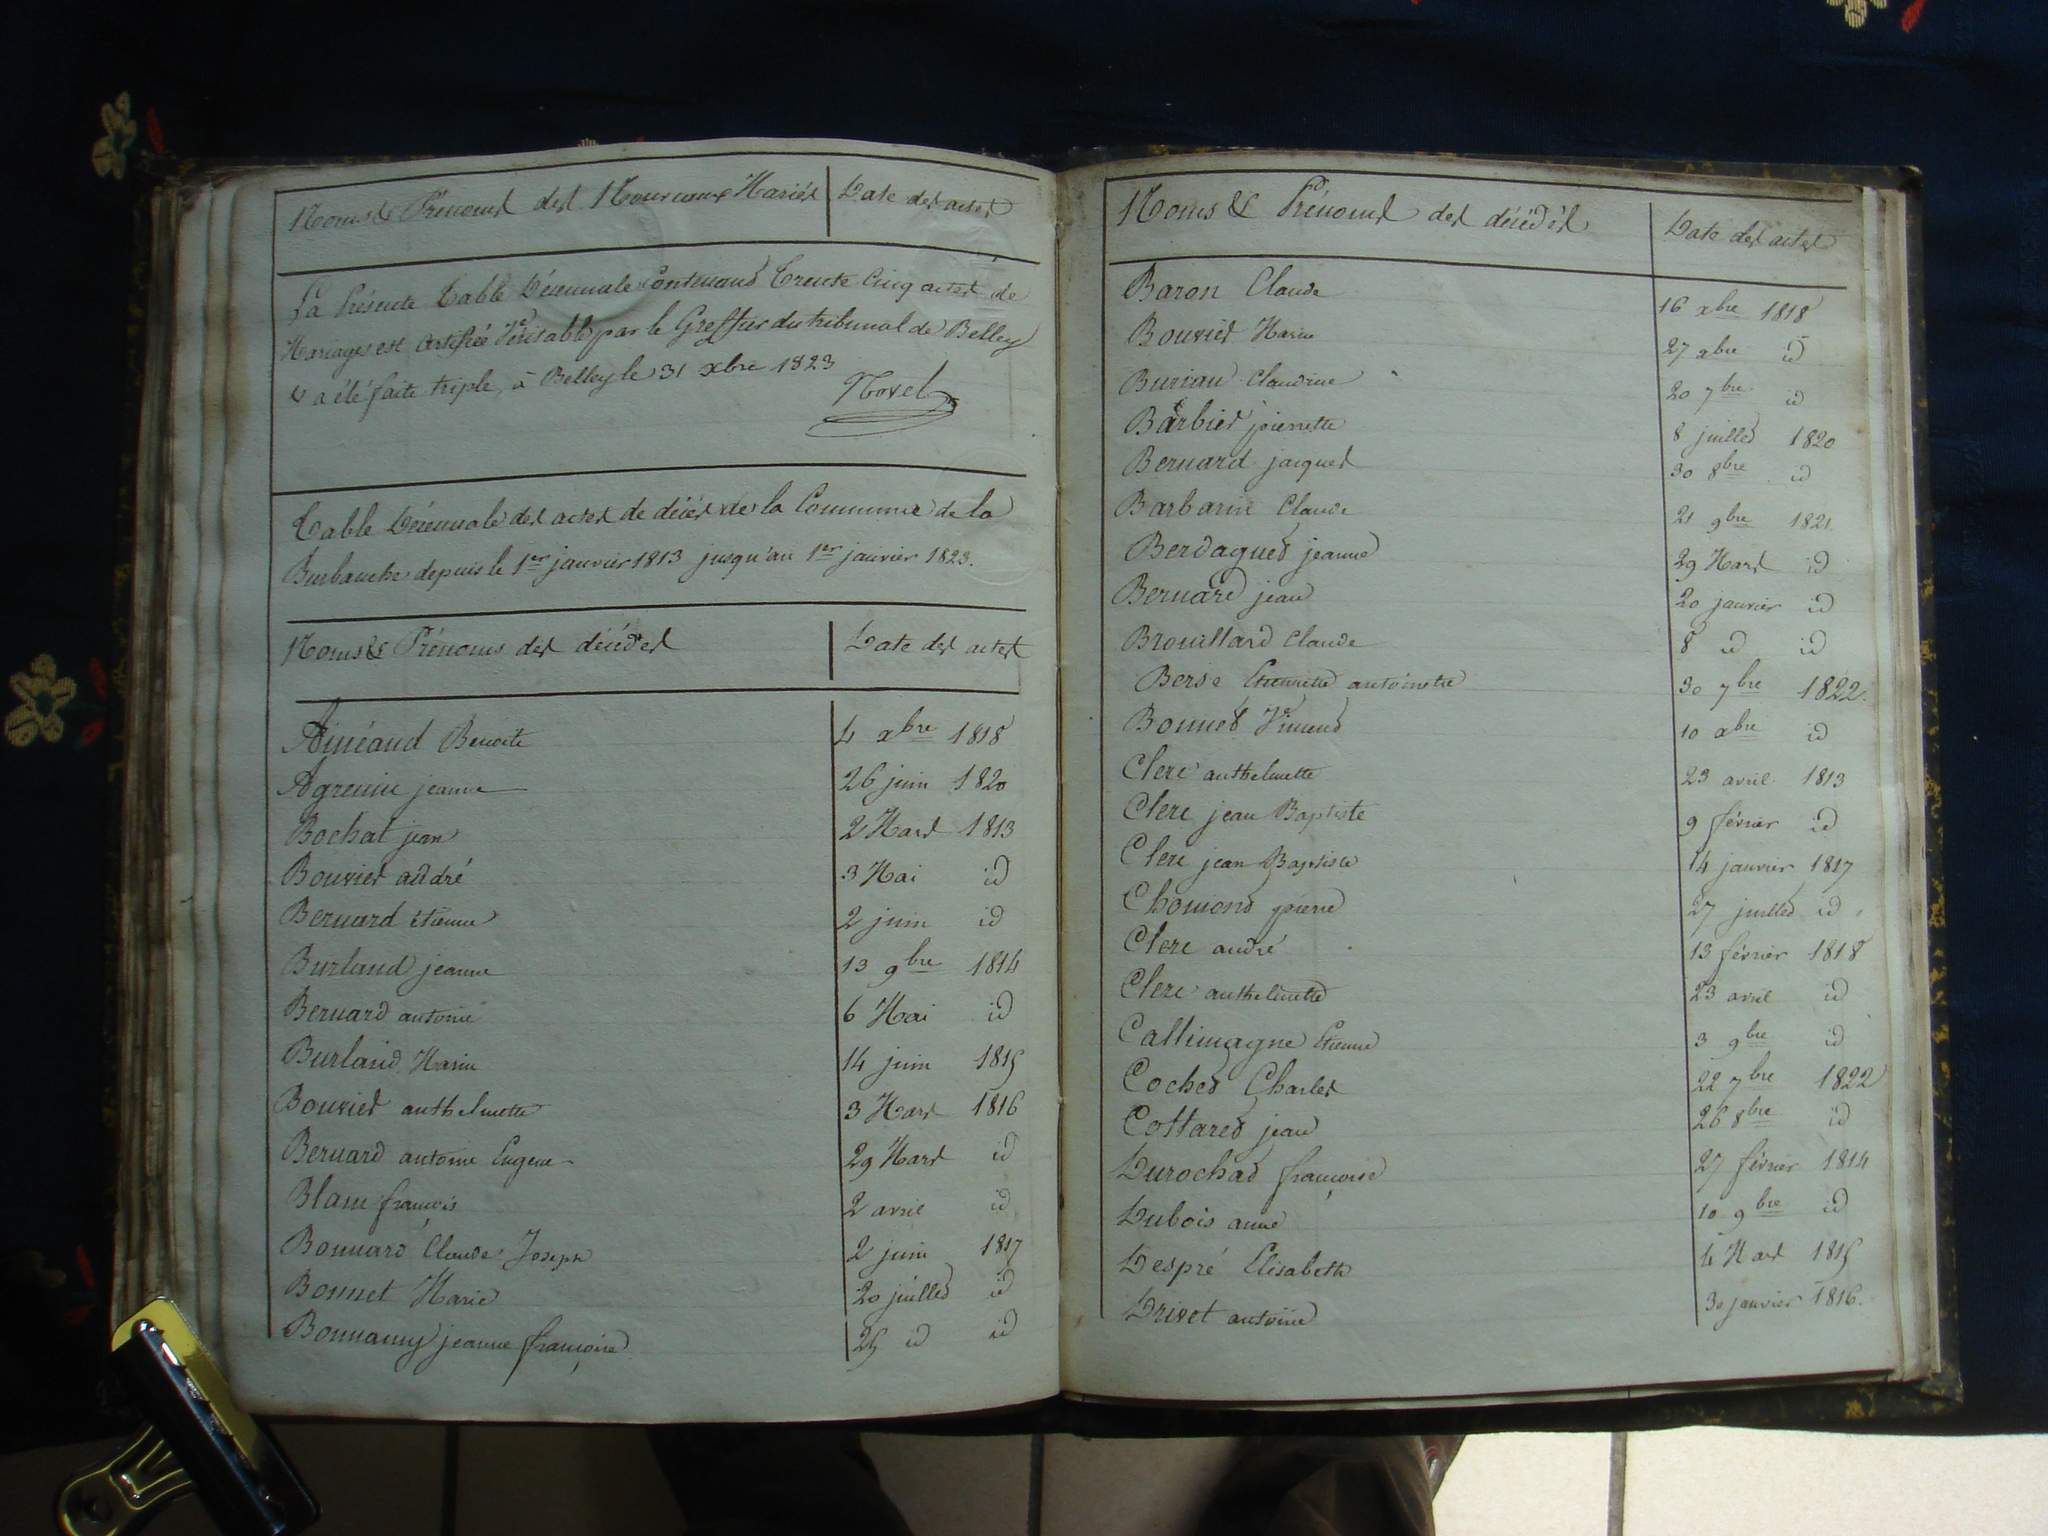 Noms & Prénoms des Nouveaux Mariés Date des actes
La Présente Table Décennale Contenand Trente Cinq actes de
Mariages est certifiée Véritable par le Greffier du tribunal de Belley
& a été faite triple, à Belley le 31 xbre 1823
Novel
Table Décennale des actes de décès de la Commune de la
Burbanche depuis le 1er janvier 1813 jusqu'au 1er janvier 1823.
Noms & Prénoms des décédés Date des actes
Benoite 4 xbre 1818
jeanne 26 juin 1820
Bochat jean 2 Mars 1813
Bouvier andré 3 Mai id
Bernard étienne 2 juin id
Burland jeanne 13 9bre 1814
Bernard antoine 6 Mai id
Burland Marie 14 juin 1815
Bouvier anthelmette 3 Mars 1816
Bernard antoine Eugene 29 Mars id
Blanc françois 2 avril id
Bonnard Claude Joseph 2 juin 1817
Bonnet Marie 20 juillet id
Bonnamy jeanne françoise 25 id id
Noms & Prénoms des décédés Date des actes
Baron Claude 16 xbre 1818
Bouvier Marie 27 xbre id
Claudine 20 7bre id
Barbier pierrette 8 juillet 1820
Bernard jacques 30 8bre id
Barbarin Claude 21 9bre 1821.
Berdaguet jeanne 29 Mars id
Bernard jean 20 janvier id
Brouillard Claude 8 id id
Etiennette antoinette 30 7bre 1822.
Bonnet 10 xbre id
Clerc anthelmette 23 avril 1813
Clerc jean Baptiste 9 février id
Clerc jean Baptiste 14 janvier 1817
Chomond pierre 27 juillet id
Clerc andré 13 février 1818
Clerc anthelmette 23 avril id
Callimagne Etienne 3 9bre id
Cochet Charles 22 7bre 1822
Cottaret jean 26 8bre id
Durochat françoise 27 février 1814
Dubois anne 10 9bre id
Despré Elisabeth 4 Mars 1815
Drivet antoine 30 janvier 1816.